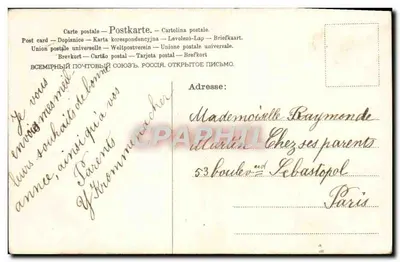 Carte postale — Postkarte. — Cartolina postale
Post card — Dopisnice — Karta korespondencyjna — Levelezö-Lap — Briefkaart.
Union postale universelle — Weltpostverein — Unione postale universale.
Brevkort — Cartão postal — Tarjeta postal — Brefkort
ВСЕМІРНЫЙ ПОЧТОВЫЙ СОЮЗЪ. РОССІЯ. ОТКРЫТОЕ ПИСЬМО.
Je vous
envoie mes meil
leurs souhaits de bonne
année, ainsi qu'à vos
Parents
Y Krommenacher
Adresse:
Mademoiselle Raymonde
Martin Chez ses parents
53 boulevard Sébastopol
Paris
CPAPHIL.COM